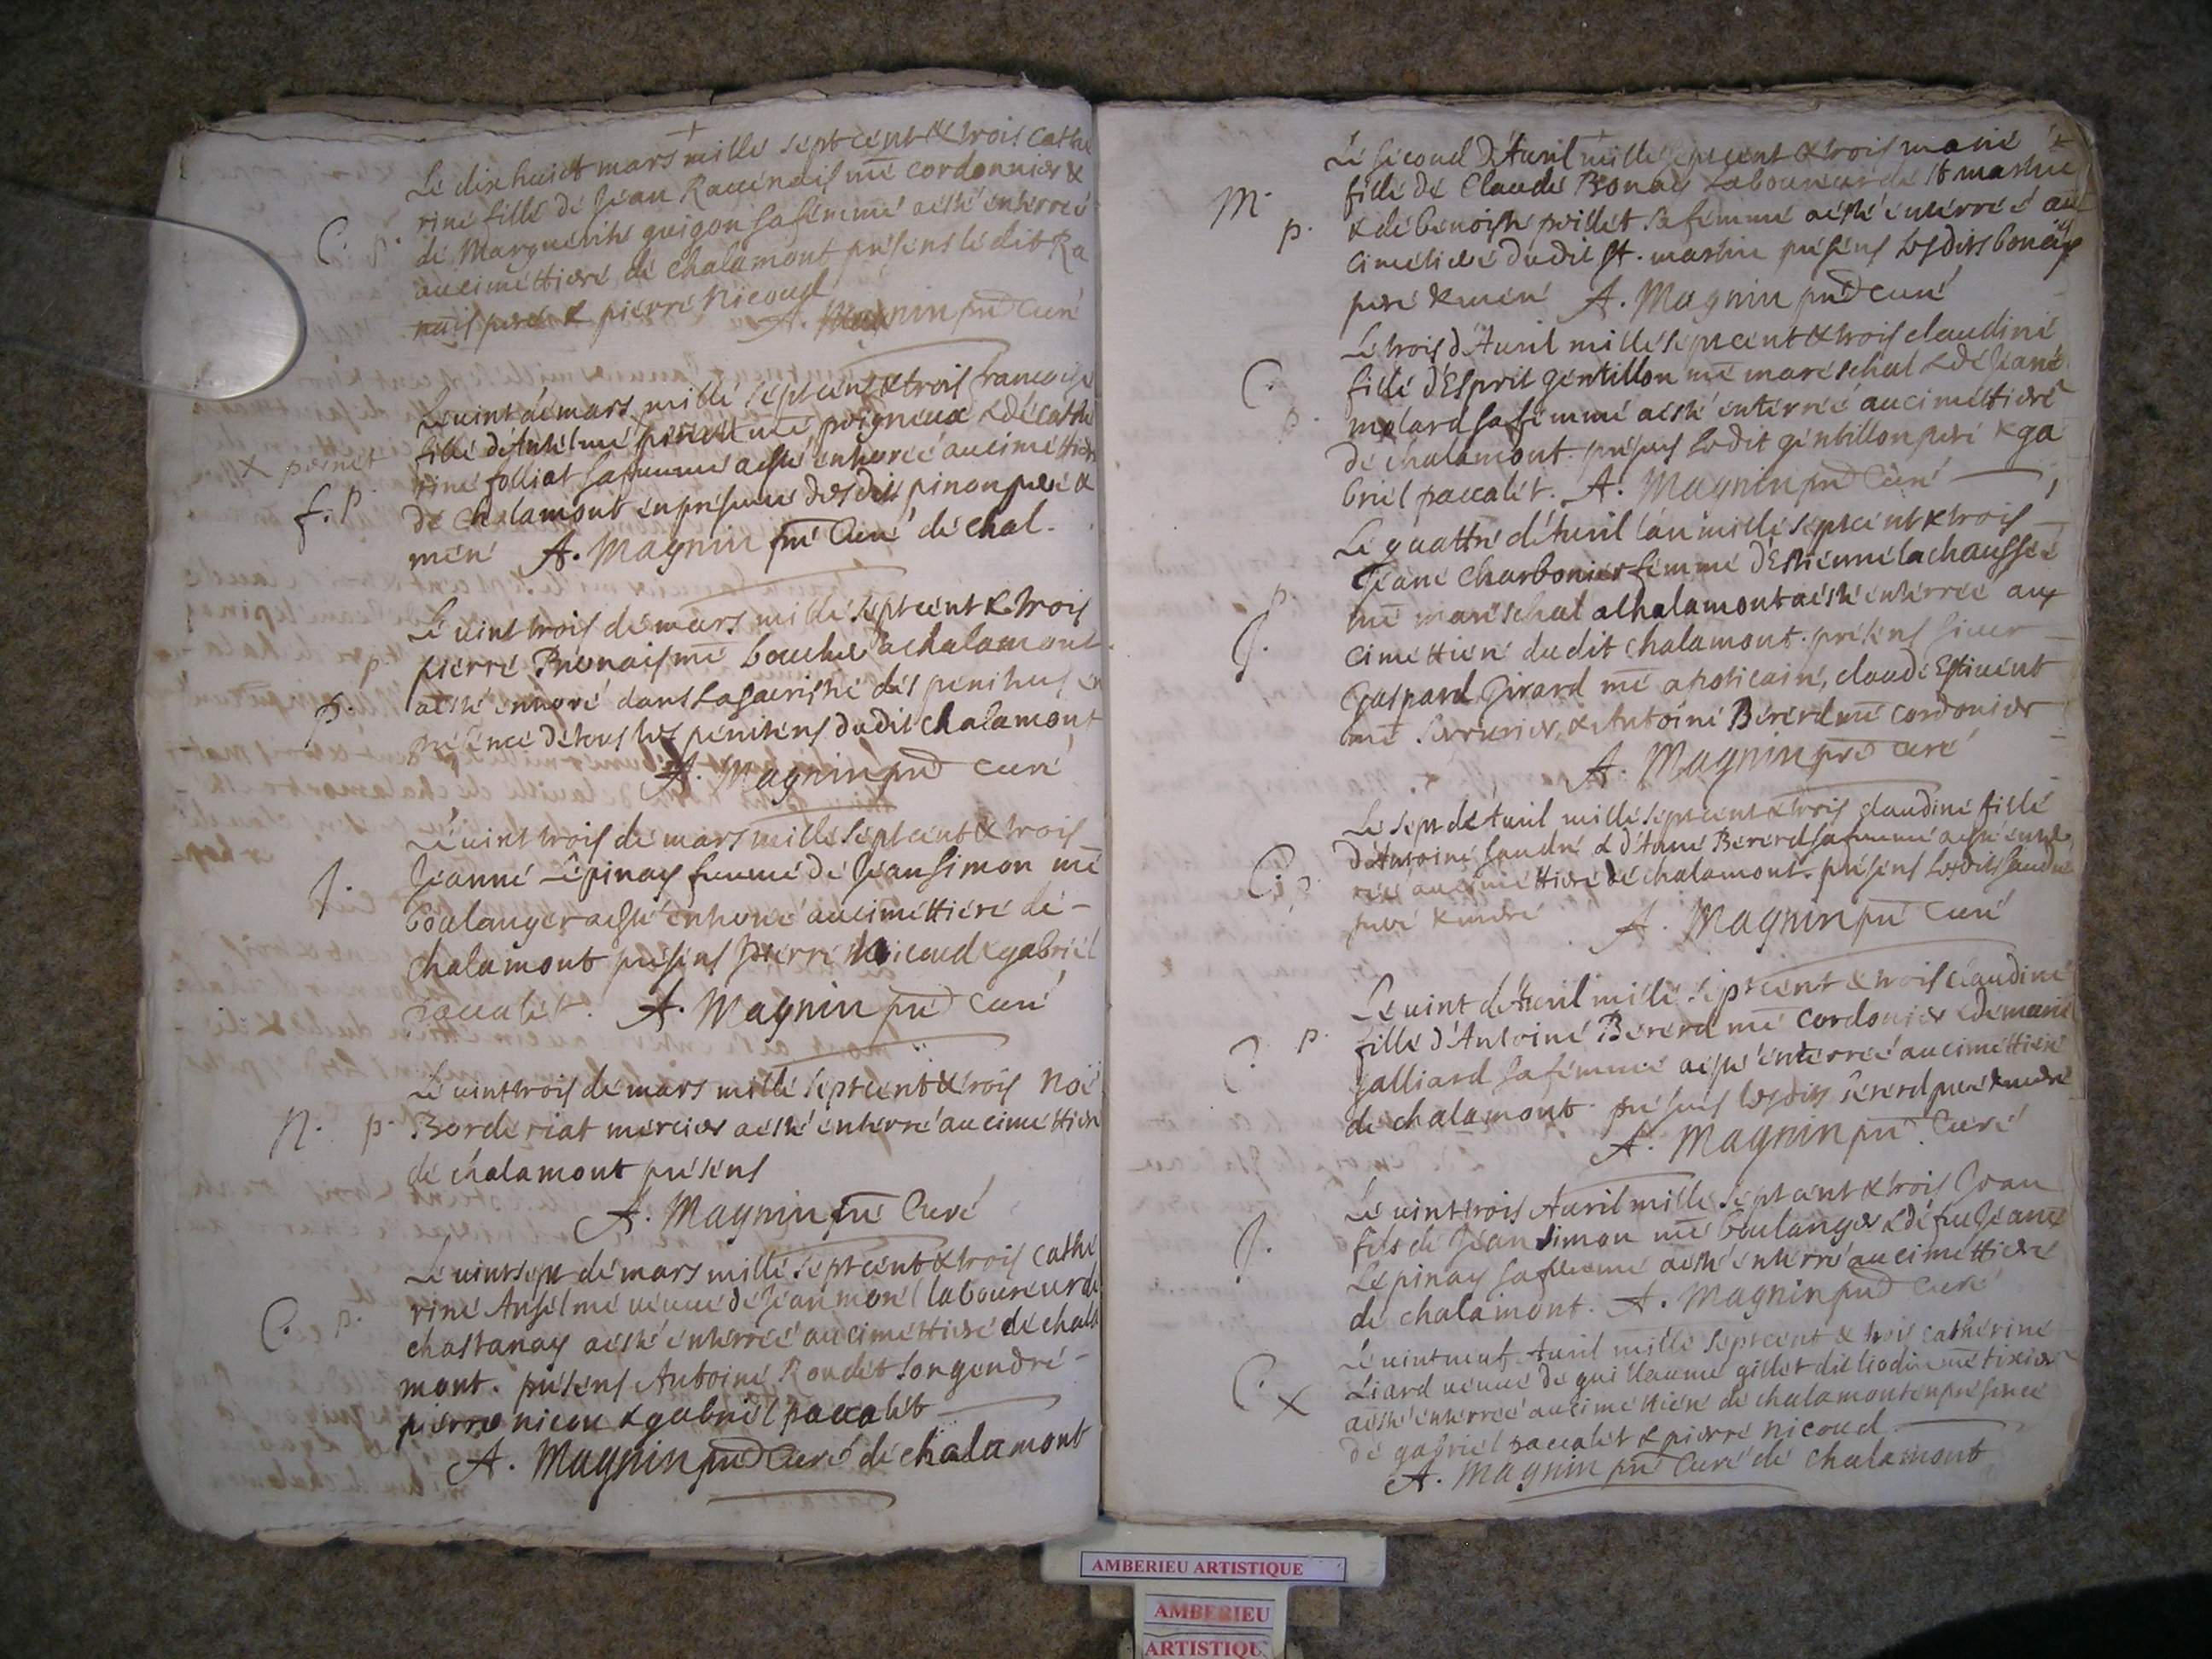 Le dix huict mars mille sept cent & trois Cathe
rine fille de Jean Rauenais me cordonnier &
de Marguerite guigon sa femme a esté enterrée
C. p.
au cimettiere de chalamont présens ledit Ra
nais pere & pierre Nicoud
A. Magnin pre Curé
Le vint de mars mille sept cent & trois francoise
fille d'Antelme me poigneux & de Cathe
x pernet
rine folliat sa femme a esté enterée au cimettiere
f. P.
de Chalamont en présence desdits pinon pere &
mere A. Magnin pre Curé de chal.
Le vint trois de mars mille sept cent & trois
pierre me boucher a chalamont
p.
a esté enterré dans la sacristie des penitens en
p.
présence de tous les penitens dudit chalamont
A. Magnin pre Curé
Le vint trois de mars mille sept cent & trois
Jeanne Lépinay femme de Jean Simon me
J.
boulanger a esté enterré au cimettiere de
chalamont présens pierre Nicoud & gabriel
paccalet. A. Magnin pre Curé
Le vint trois de mars mille sept cent & trois Noé
N. p.
Borderiat mercier a esté enterré au cimettiere
de chalamont présens
A. Magnin pre Curé
Le vint sept de mars mille sept cent & trois Cathe
rine Anselme veuve de Jean morel laboureur de
C. p.
chastanay a esté enterrée au cimettiere de chala
mont. présens Antoine Rondet son gendre
pierre nicou & gabriel paccalet
A. Magnin pre Curé de chalamont
Le second d'Auril mille sept cent & trois marie
fille de Claude Bonay Laboureur de st martin
M.
& de benoiste poillet sa femme a esté enterrée au
p.
cimetiere dudit st. martin présens lesdits bonay
pere & mere A. Magnin pre Curé
Le trois d'Auril mille sept cent & trois claudine
C.
fille d'Esprit gentillon me mareschal & de Jeane
p.
molard sa femme a esté enterrée au cimettiere
de chalamont. présens Ledit gentillon pere & ga
briel paccalet. A. Magnin pre Curé
Le quattre d'Auril l'an mille sept cent & trois
Jeane Charbonier femme d'Estienne lachaussée
p.
me mareschal a Chalamont a esté enterrée au
J.
cimettiere dudit chalamont. présens sieur
Gaspard Girard me apoticaire, claude Estiuent
me serrurier, & Antoine Bererd me cordonier
A. Magnin pre Curé
Le sept de Auril mille sept cent & trois claudine fille
d'Antoine Gaudré & d'Anne Bererd sa femme a esté enter
C. p.
rée au cimettiere de chalamont. présens lesdits Gaudré
pere & mere A. Magnin pre Curé
Le vint de Auril mille sept cent & trois claudine
C. p.
fille d'Antoine Bererd me cordonier & de marie
galliard sa femme a esté enterrée au cimettiere
de chalamont présens lesdits bererd pere & mere
A. Magnin pre Curé
Le vint trois Auril mille sept cent & trois Jean
J.
fils de Jean Simon me boulanger & de fue Jeane
Lepinay sa femme a esté enterré au cimettiere
de chalamont. A. Magnin pre Curé
Le vint neuf Auril mille sept cent & trois catherine
C. x
Liard veuue de guillaume gillet dit liodin me tixier
a esté enterrée au cimettiere de chalamont en présence
de gabriel paccalet & pierre nicoud
A. Magnin pre Curé de Chalamont
AMBERIEU ARTISTIQUE
AMBERIEU
ARTISTIQU